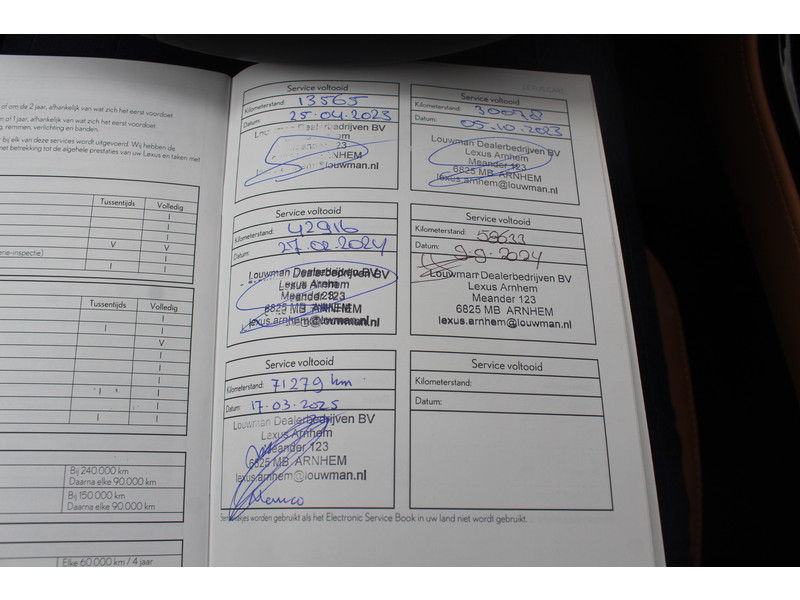 of om de 2 jaar, afhankelijk van wat zich het eerst voordoet
of 1 jaar, afhankelijk van wat zich het eerst voordoet
remmen, verlichting en banden.
bij elk van deze services wordt uitgevoerd. Wij hebben de
met betrekking tot de algehele prestaties van uw Lexus en taken met
Tussentijds Volledig
I
I
V V
I
I I
Tussentijds Volledig
I
I V
I
I
I
I I
I
I I
Bij 240.000 km
Daarna elke 90.000 km
Bij 150.000 km
Daarna elke 90.000 km
Elke 60.000 km / 4 jaar
Service voltooid
Kilometerstand: 13565
Datum: 25.04.2023
Louwman Dealerbedrijven BV
ARNHEM
@louwman.nl
Service voltooid
Kilometerstand: 30078
Datum: 05.10.2023
Louwman Dealerbedrijven BV
Lexus Arnhem
Meander 123
6825 MB ARNHEM
lexus.arnhem@louwman.nl
Service voltooid
Kilometerstand: 42916
Datum: 27.02.2024
Louwman Dealerbedrijven BV
Lexus Arnhem
Meander 123
6825 MB ARNHEM
lexus.arnhem@louwman.nl
Service voltooid
Kilometerstand: 58633
Datum: 9-9-2024
Louwman Dealerbedrijven BV
Lexus Arnhem
Meander 123
6825 MB ARNHEM
lexus.arnhem@louwman.nl
Service voltooid
Kilometerstand: 71279 km
Datum: 17.03.2025
Louwman Dealerbedrijven BV
Lexus Arnhem
Meander 123
6825 MB ARNHEM
lexus.arnhem@louwman.nl
Service voltooid
Kilometerstand:
Datum:
worden gebruikt als het Electronic Service Book in uw land niet wordt gebruikt.